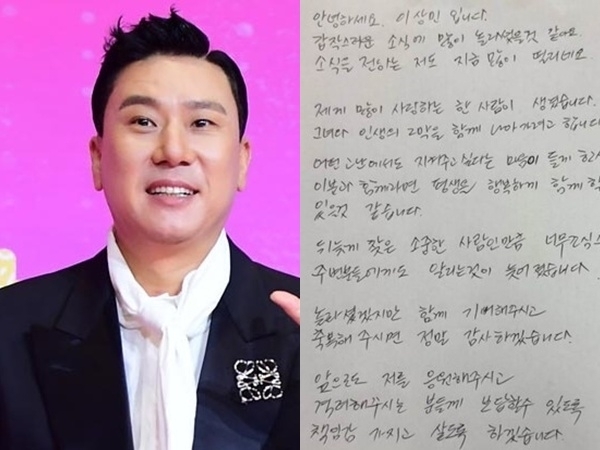 안녕하세요. 이상민 입니다.
갑작스러운 소식에 많이 놀라셨을것 같아요.
소식을 전하는 저도 지금 많이 떨리네요.
제게 많이 사랑하는 한 사람이 생겼습니다.
그녀와 인생의 2막을 함께 나아가려고 합니다.
어떤 고난에서도 지켜주고 싶다는 마음이 들게 한
이분과 함께라면 평생을 행복하게 함께 할
있을것 같습니다.
뒤늦게 찾은 소중한 사람인만큼 너무 조심스
주변분들에게도 알리는것이 늦어졌습니다.
놀라셨겠지만 함께 기뻐해주시고
축복해 주시면 정말 감사하겠습니다.
앞으로도 저를 응원해주시고
격려해주시는 분들께 보답할수 있도록
책임감 가지고 살도록 하겠습니다.